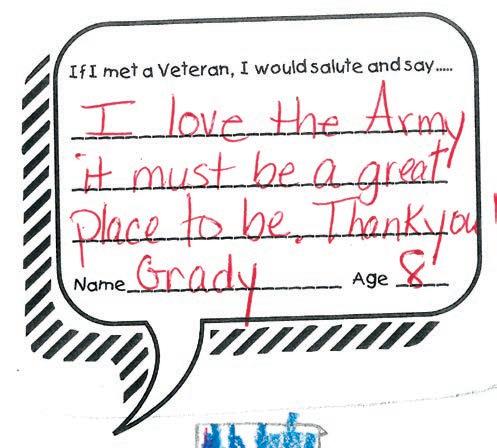 If I met a Veteran, I would salute and say.....
I love the Army
it must be a great
place to be. Thank you!
Name Grady Age 8